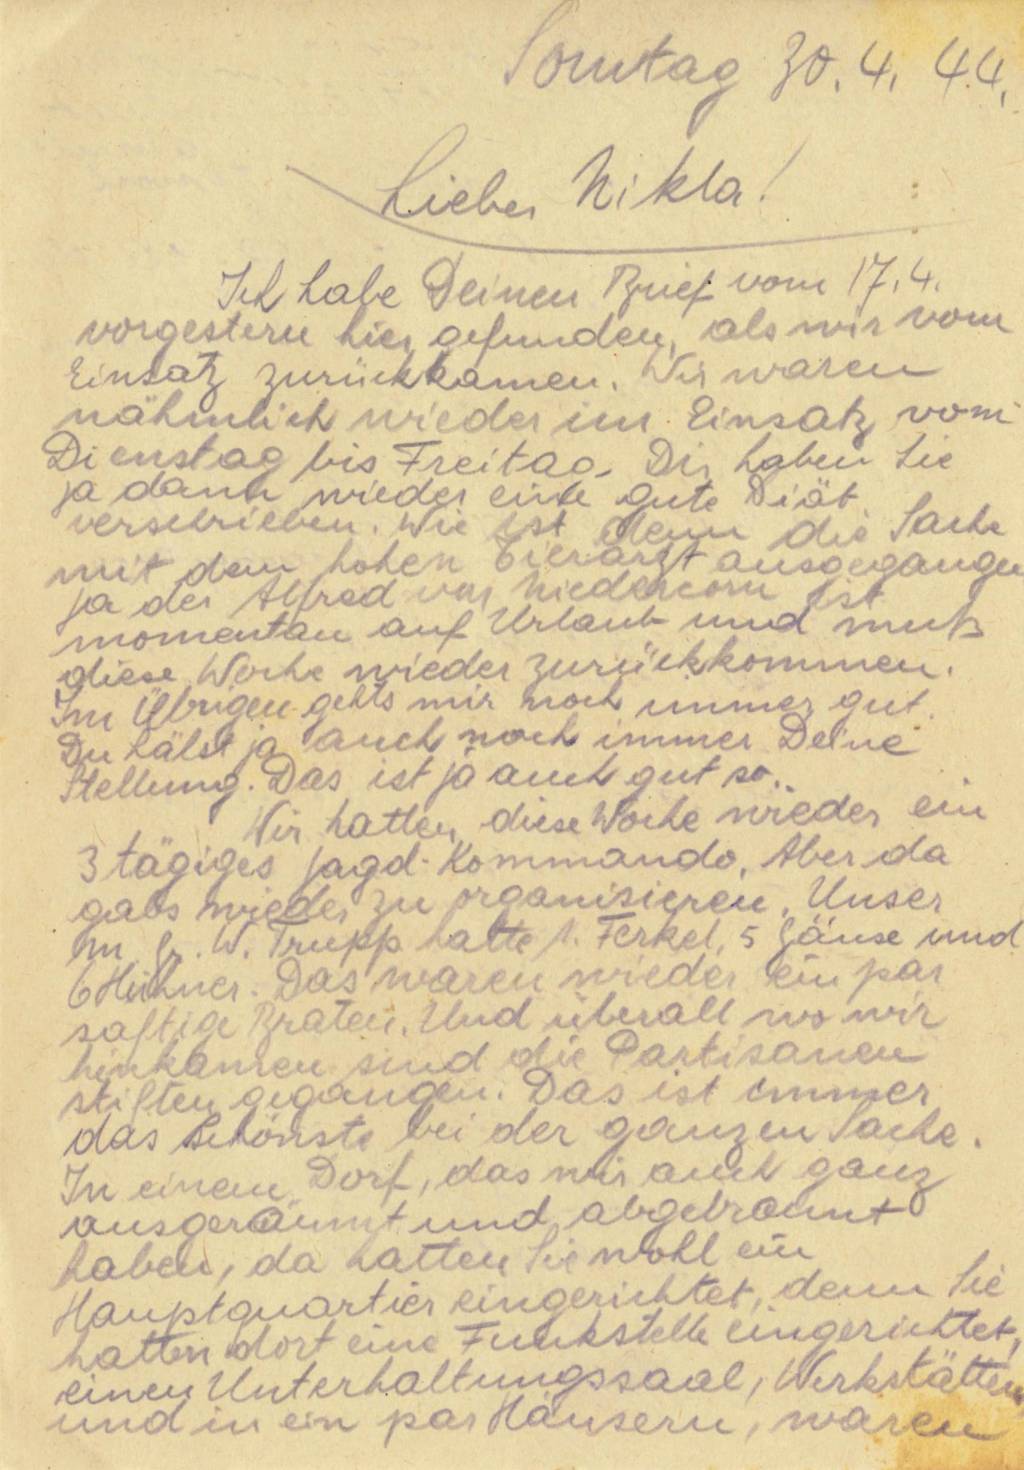 Sonntag 30.4.44.
Lieber Nikla!
Ich habe Deinen Brief vom 17.4.
vorgestern hier gefunden, als wir vom
Einsatz zurückkamen. Wir waren
nähmlich wieder im Einsatz vom
Dienstag bis Freitag. Dir haben Sie
ja dann wieder eine gute Diät
verschrieben. Wie ist denn die Sache
mit dem hohen Tierarzt ausgegangen
ja der Alfred von Niedercorn ist
momentan auf Urlaub und muß
diese Woche wieder zurückkommen.
Im Übrigen gehts mir noch immer gut.
Du hälst ja auch noch immer Deine
Stellung. Das ist ja auch gut so.
Wir hatten diese Woche wieder ein
3 tägiges Jagd-Kommando. Aber da
gabs wieder zu organisieren. Unser
m. Gr. W. Trupp hatte 1. Ferkel, 5 Gänse und
6 Hühner. Das waren wieder ein par
saftige Braten. Und überall wo wir
hinkamen sind die Partisanen
stiften gegangen. Das ist immer
das Schönste bei der ganzen Sache.
In einem Dorf, das wir auch ganz
ausgeräumt und abgebrannt
haben, da hatten Sie wohl ein
Hauptquartier eingerichtet, denn Sie
hatten dort eine Funkstelle eingerichtet,
einen Unterhaltungssaal, Werkstätten,
und in ein par Häusern, waren